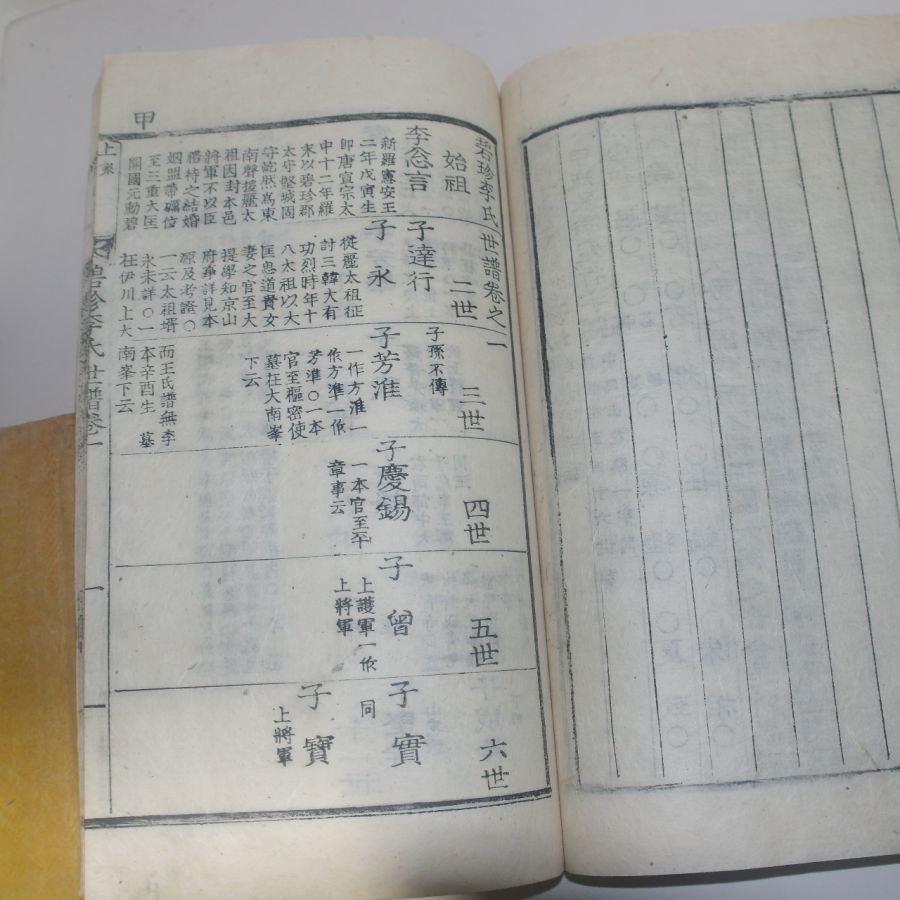 甲
碧珍李氏世譜卷之一
始祖
李忩言
新羅憲安王
二年戊寅生
即唐宣宗太
中十二年羅
末以碧珍郡
太守堅城固
守屹然爲東
南聲援麗太
祖因封本邑
將軍不以臣
禮待之結婚
姻盟帶礪位
至三重大匡
開國元勳碧
二世
子達行
子永
從麗太祖征
討三韓大有
功烈時年十
八太祖以大
匡思道貴女
妻之官至大
提學知京山
府事詳見本
源及考證〇
一云太祖壻
永未詳〇一
在伊川上大
三世
子孫不傳
子芳淮
一作方淮一
作方準一作
芳準〇一本
官至樞密使
墓在大南峯
下云
而王氏譜無李
本辛酉生 墓
南峯下云
四世
子慶錫
一本官至平
章事云
五世
子曾
上護軍一作
上將軍
六世
子實
同
子寶
上將軍
上系
碧珍李氏世譜卷一
一